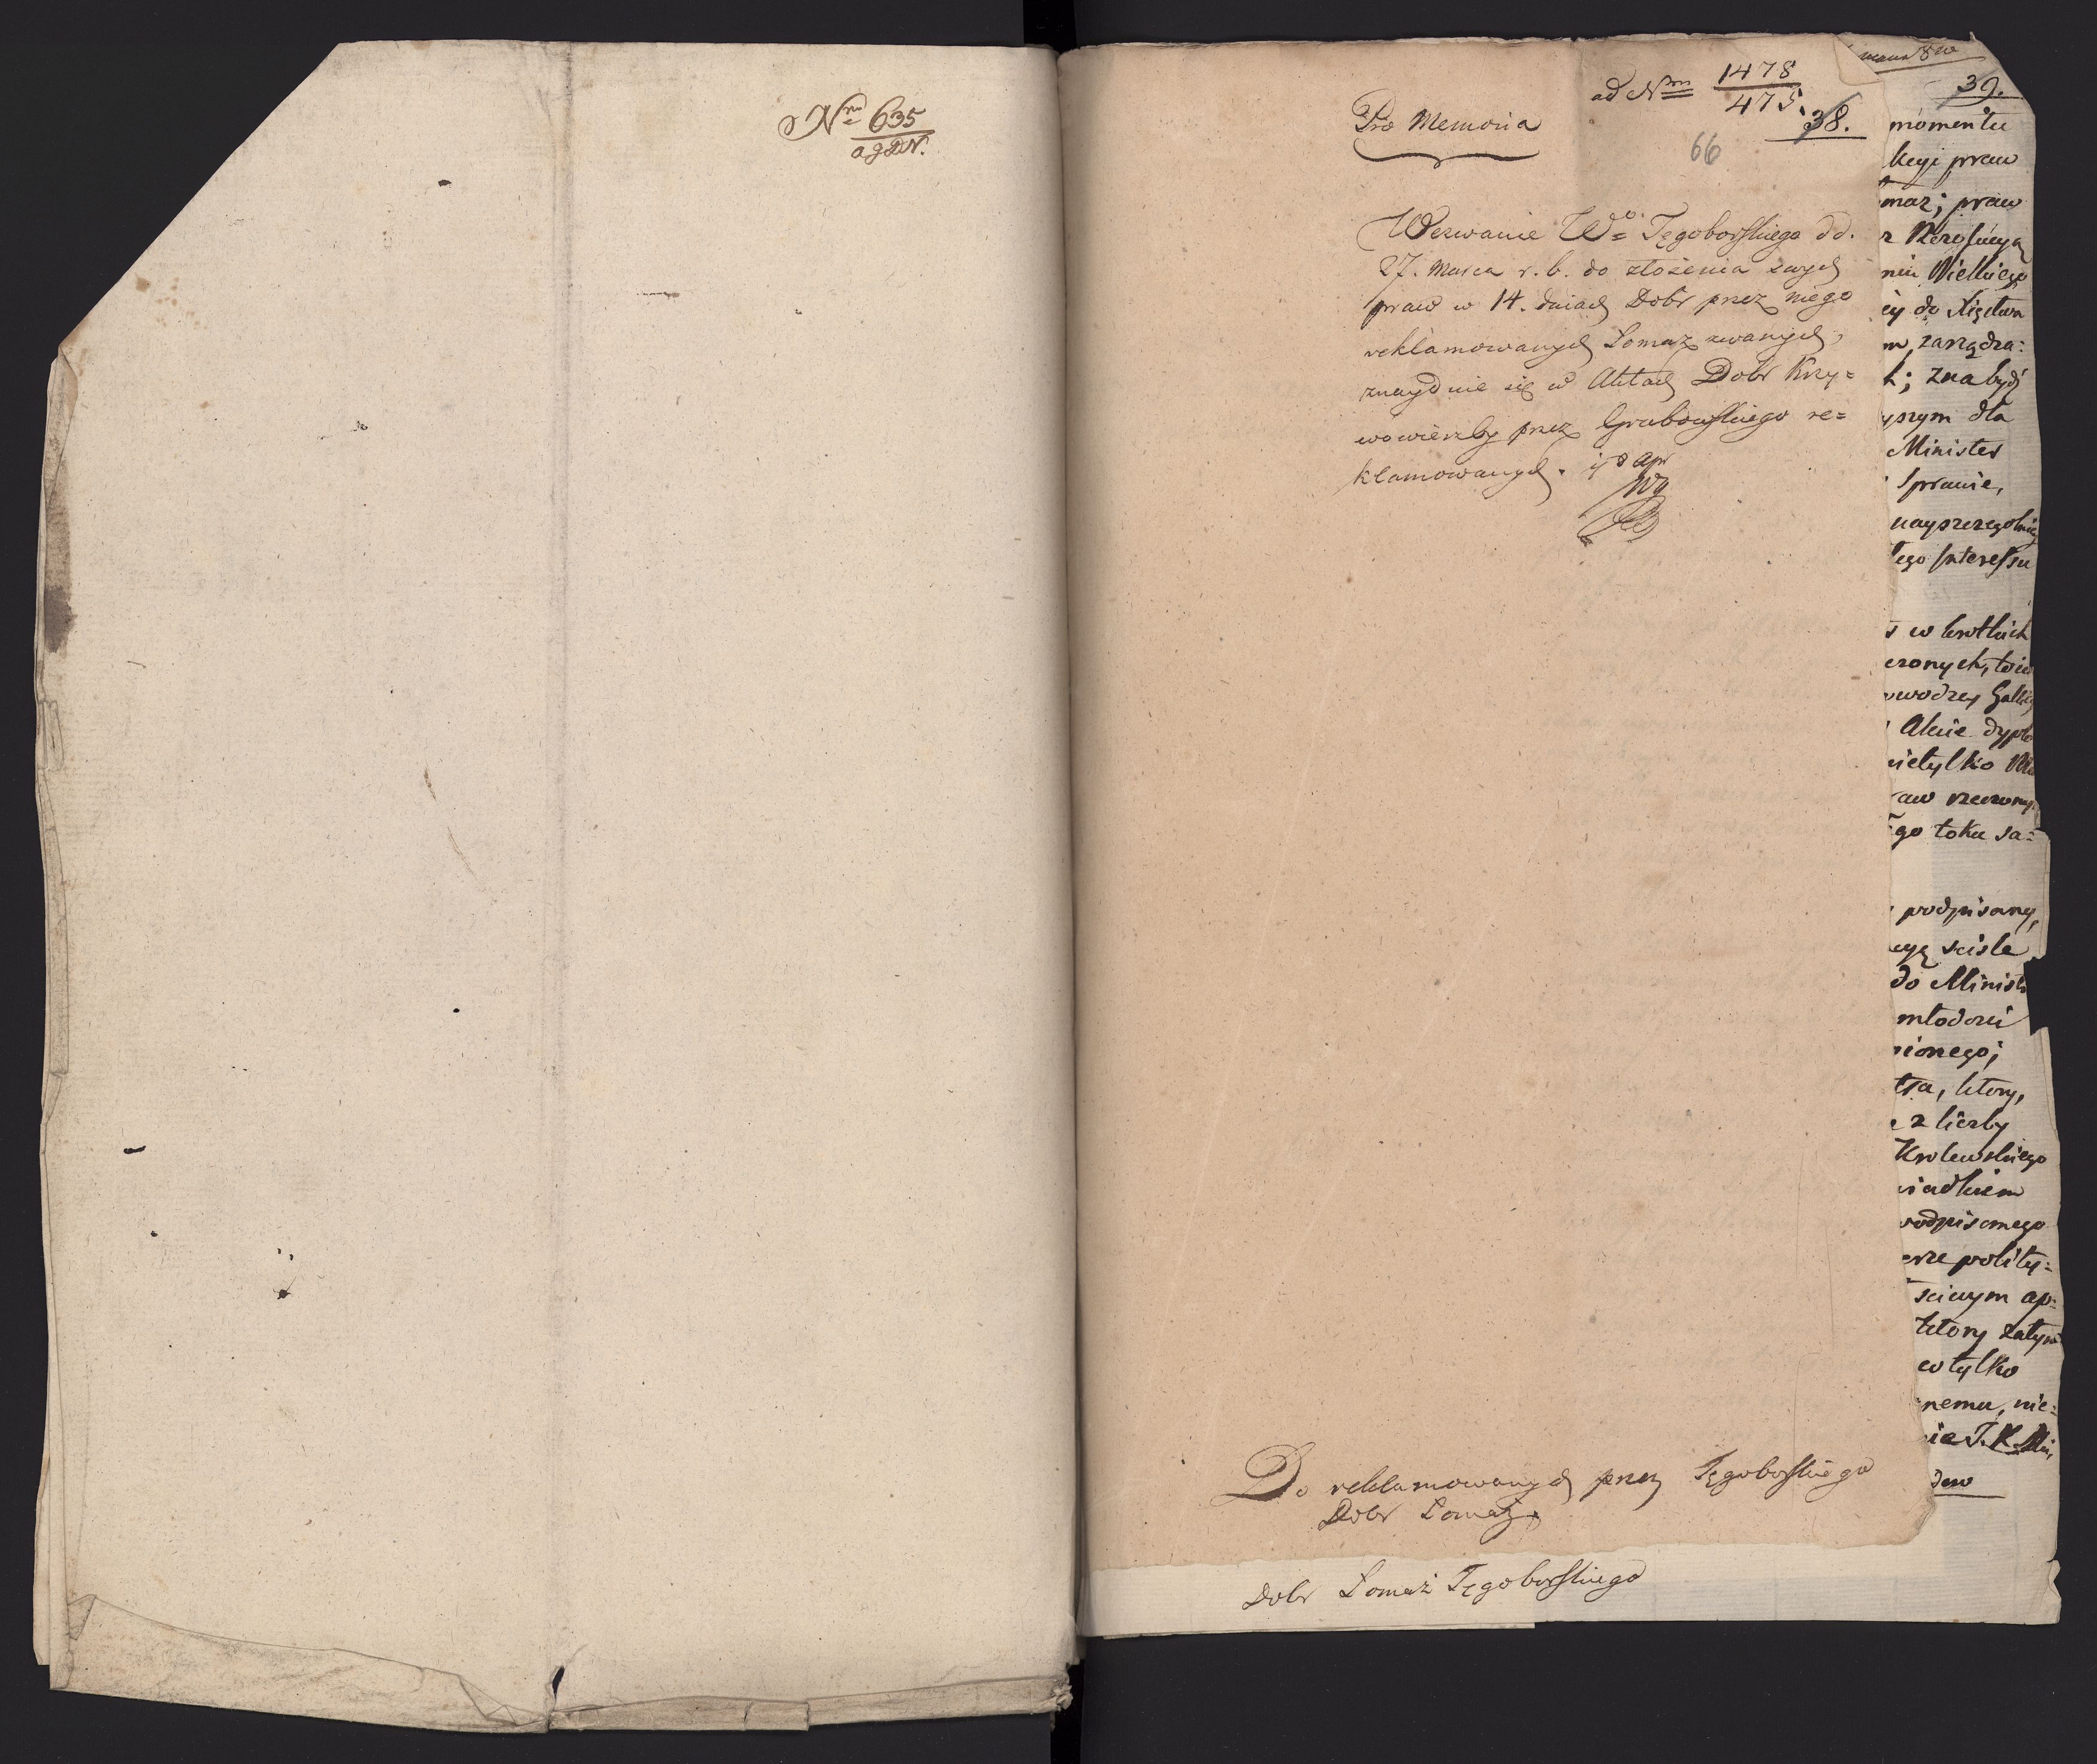 Nro 635
a g D N.
ad Nrm 1478
475.
38.
66
Pro Memoria
Wezwanie Wo Tęgoborskiego dd.
27. Marca r. b. do złożenia swych
praw w 14. dniach Dobr przez niego
reklamowanych Lomaz zwanych,
znayduie się w Aktach Dobr Krzy=
wowierzby przez Grabowskiego re=
klamowanych.
Do reklamowanych przez Tęgoborskiego
Dobr Lomaz
Dobr Lomaz Tęgoborskiego
39.
momentu
kcyi praw
maz; praw
z Rezolucyą
niu Wielkiego
ey do Xięstwa
m, zarządza:
k; znabydź
yszym dla
Minister
Sprawie,
nayszczegolniey
tego Interessu
s w krotkich
czonych, to iest
owodzey Gallicy
Akcie dyplo
nietylko
aw rzeczony
ego toku sa=
podpisany,
cyą scisle
do Ministr
młodosci
nionego;
tra, ktory,
z liczby
Krolewskiego
wiadkiem
podpisanego
erze polity=
sciwym ap=
ktory zatym
co tylko
nemu, nie=